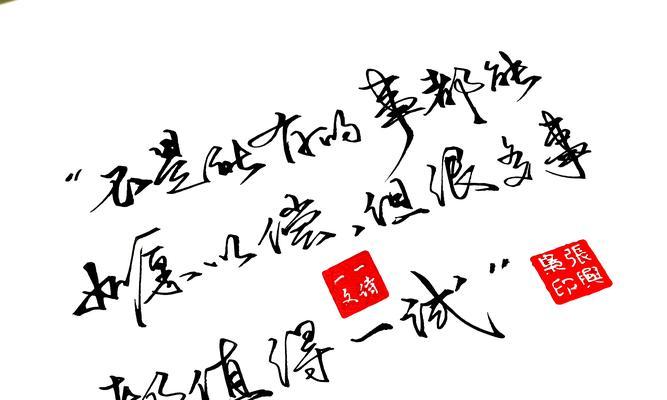 “不是所有的事都能
如愿以偿,但很多事
都值得一试”
一诗一文